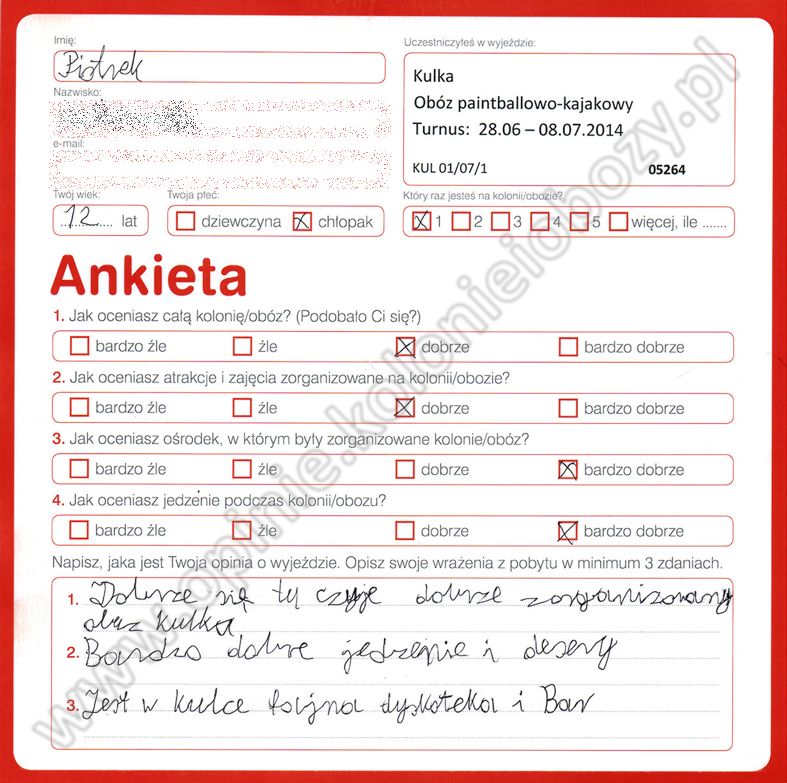 Imię:
Piotrek
Nazwisko:
e-mail:
Twój wiek:
12 lat
Twoja płeć:
dziewczyna chłopak
Uczestniczyłeś w wyjeździe:
Kulka
Obóz paintballowo-kajakowy
Turnus: 28.06 – 08.07.2014
KUL 01/07/1 05264
Który raz jesteś na kolonii/obozie?
1 2 3 4 5 więcej, ile .......
Ankieta
1. Jak oceniasz całą kolonię/obóz? (Podobało Ci się?)
bardzo źle źle dobrze bardzo dobrze
2. Jak oceniasz atrakcje i zajęcia zorganizowane na kolonii/obozie?
bardzo źle źle dobrze bardzo dobrze
3. Jak oceniasz ośrodek, w którym były zorganizowane kolonie/obóz?
bardzo źle źle dobrze bardzo dobrze
4. Jak oceniasz jedzenie podczas kolonii/obozu?
bardzo źle źle dobrze bardzo dobrze
Napisz, jaka jest Twoja opinia o wyjeździe. Opisz swoje wrażenia z pobytu w minimum 3 zdaniach.
1. Dobrze się tu czyje dobrze zorganizowany
obuz kulka
2. Bardzo dobre jedzenie i desery
3. Jest w kulce fajna dyskoteka i Bar
www.opinie.kolonieiobozy.pl